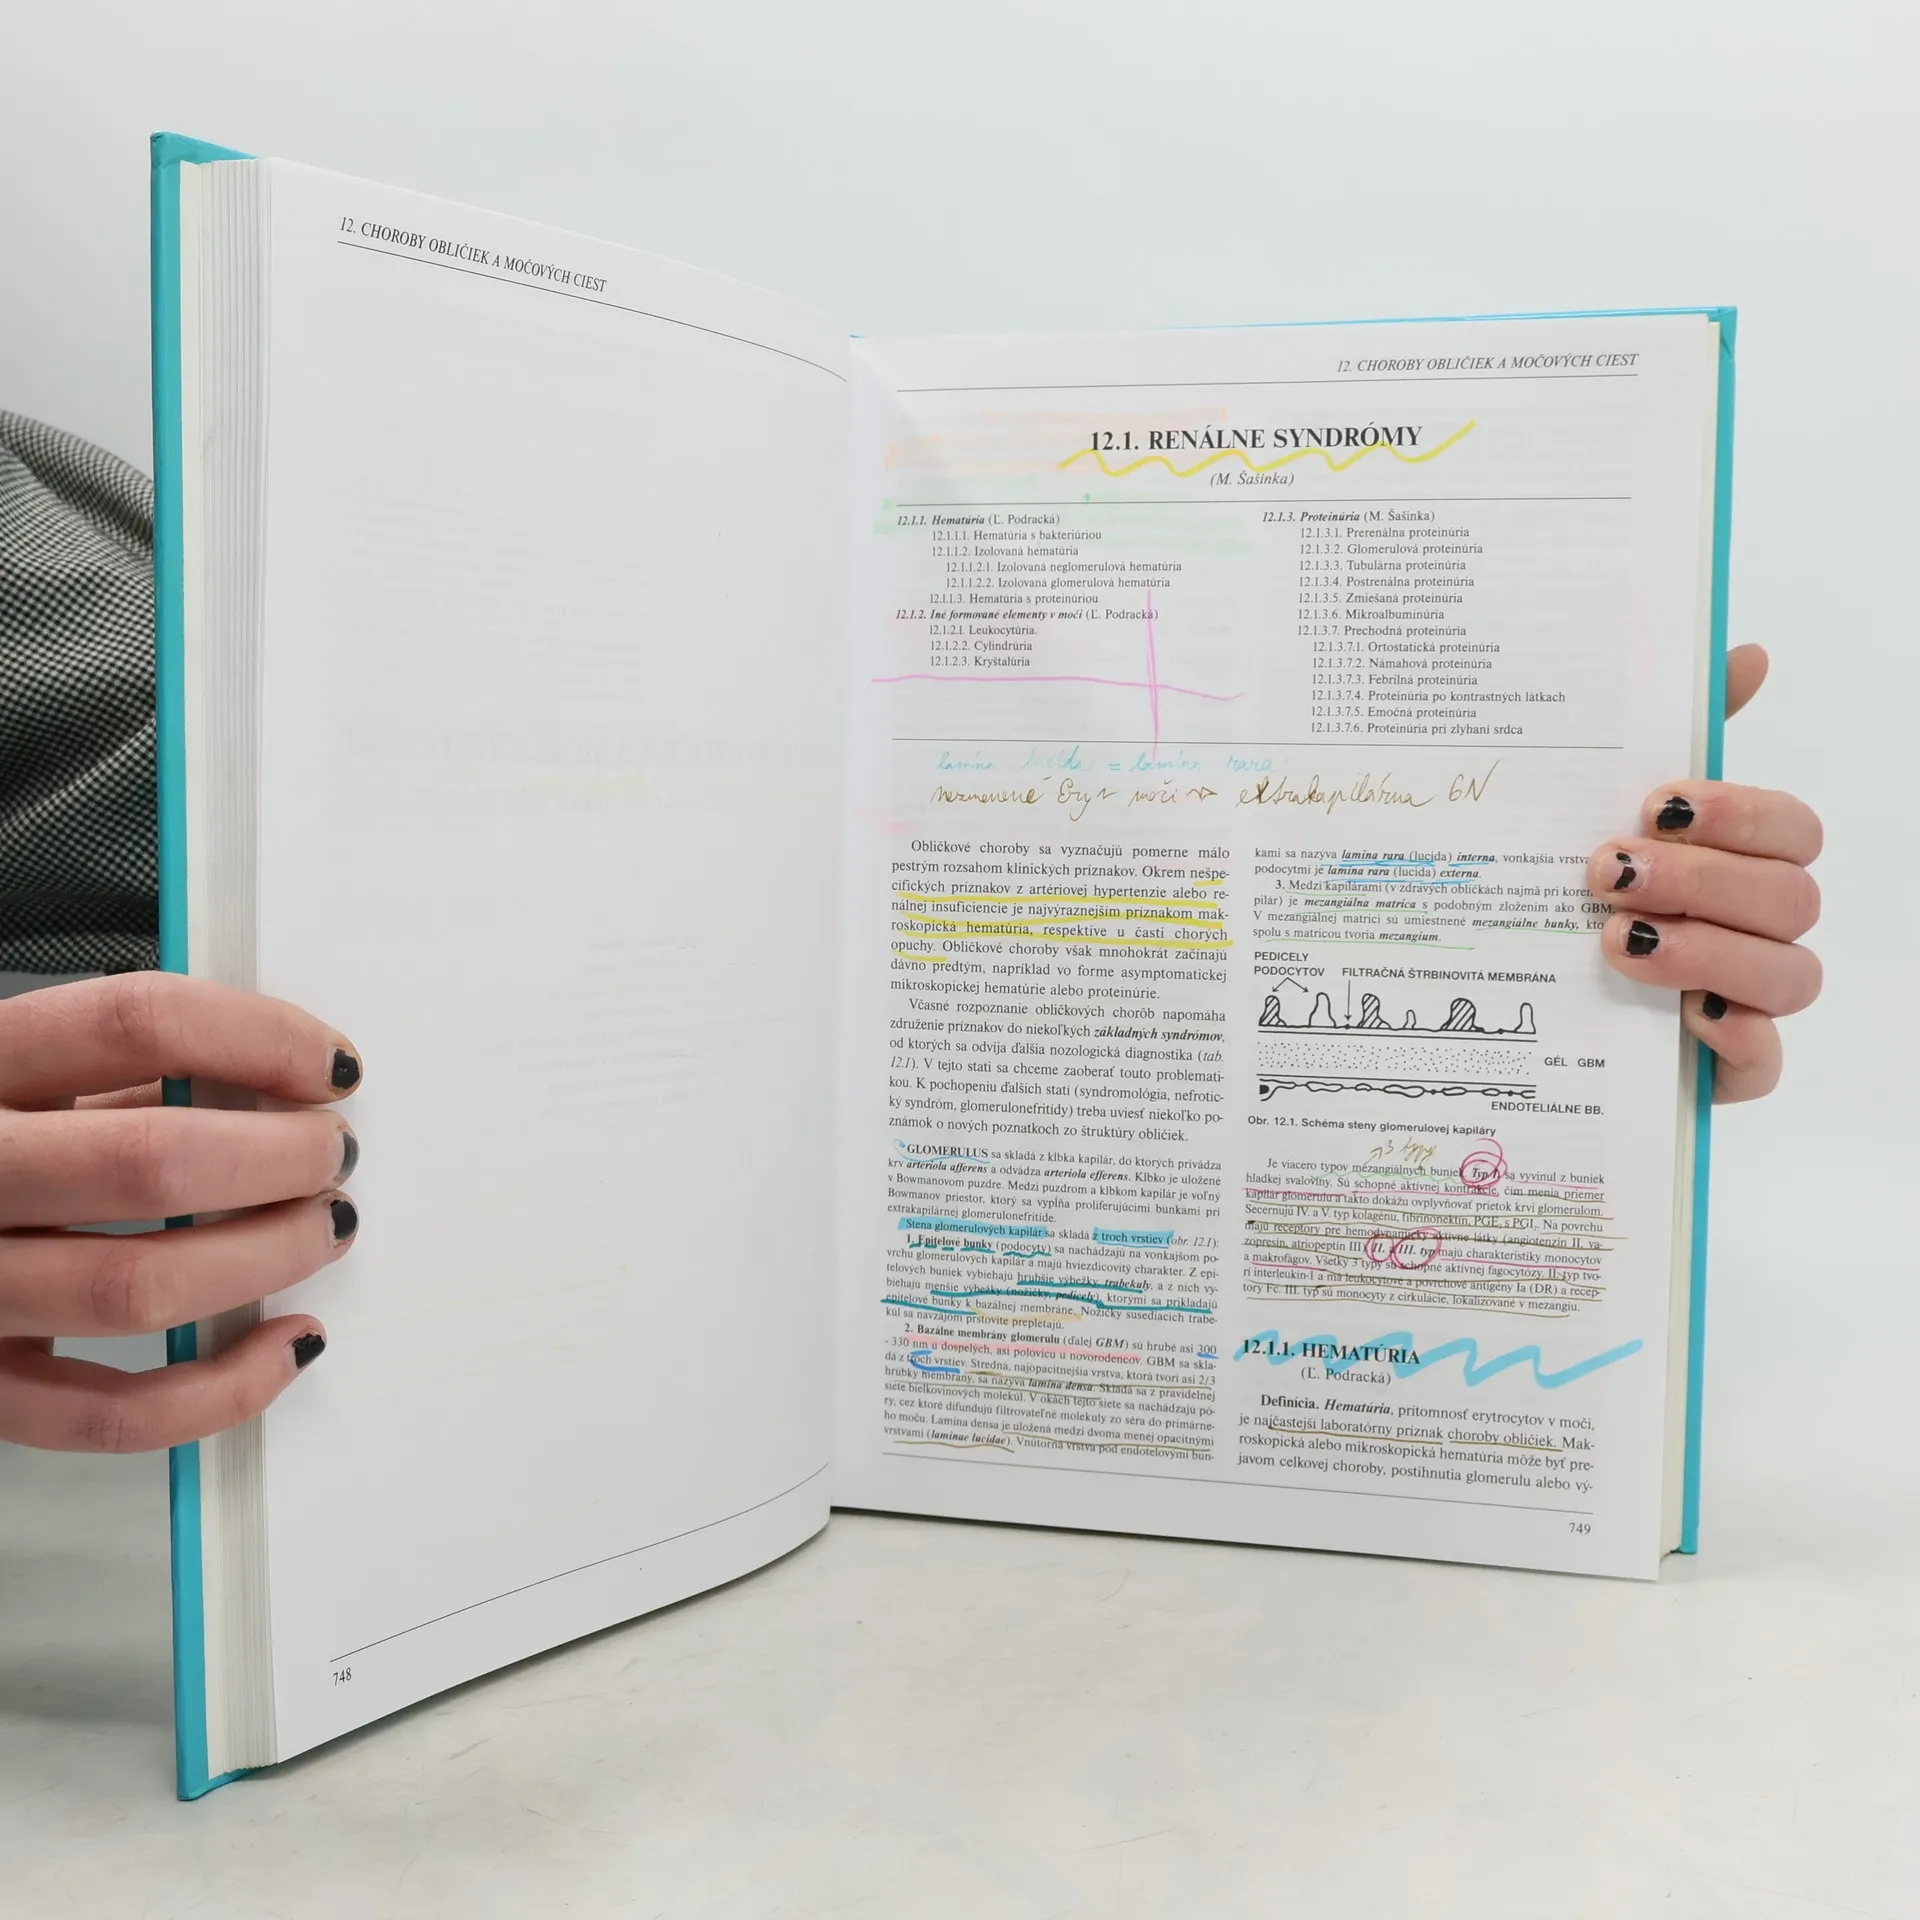 12. CHOROBY OBLIČIEK A MOČOVÝCH CIEST
748
12. CHOROBY OBLIČIEK A MOČOVÝCH CIEST
12.1. RENÁLNE SYNDRÓMY
(M. Šašinka)
12.1.1. Hematúria (Ľ. Podracká)
12.1.1.1. Hematúria s bakteriúriou
12.1.1.2. Izolovaná hematúria
12.1.1.2.1. Izolovaná neglomerulová hematúria
12.1.1.2.2. Izolovaná glomerulová hematúria
12.1.1.3. Hematúria s proteinúriou
12.1.2. Iné formované elementy v moči (Ľ. Podracká)
12.1.2.1. Leukocytúria.
12.1.2.2. Cylindrúria
12.1.2.3. Kryštalúria
12.1.3. Proteinúria (M. Šašinka)
12.1.3.1. Prerenálna proteinúria
12.1.3.2. Glomerulová proteinúria
12.1.3.3. Tubulárna proteinúria
12.1.3.4. Postrenálna proteinúria
12.1.3.5. Zmiešaná proteinúria
12.1.3.6. Mikroalbuminúria
12.1.3.7. Prechodná proteinúria
12.1.3.7.1. Ortostatická proteinúria
12.1.3.7.2. Námahová proteinúria
12.1.3.7.3. Febrilná proteinúria
12.1.3.7.4. Proteinúria po kontrastných látkach
12.1.3.7.5. Emočná proteinúria
12.1.3.7.6. Proteinúria pri zlyhaní srdca
lamina lucida = lamina rara
nezmenené Ery moči extrakapilárna GN
Obličkové choroby sa vyznačujú pomerne málo
pestrým rozsahom klinických príznakov. Okrem nešpe-
cifických príznakov z artériovej hypertenzie alebo re-
nálnej insuficiencie je najvýraznejším príznakom mak-
roskopická hematúria, respektíve u časti chorých
opuchy. Obličkové choroby však mnohokrát začínajú
dávno predtým, napríklad vo forme asymptomatickej
mikroskopickej hematúrie alebo proteinúrie.
Včasné rozpoznanie obličkových chorôb napomáha
združenie príznakov do niekoľkých základných syndrómov,
od ktorých sa odvíja ďalšia nozologická diagnostika (tab.
12.1). V tejto stati sa chceme zaoberať touto problemati-
kou. K pochopeniu ďalších statí (syndromológia, nefrotic-
ký syndróm, glomerulonefritídy) treba uviesť niekoľko po-
známok o nových poznatkoch zo štruktúry obličiek.
GLOMERULUS sa skladá z klbka kapilár, do ktorých privádza
krv arteriola afferens a odvádza arteriola efferens. Klbko je uložené
v Bowmanovom puzdre. Medzi puzdrom a klbkom kapilár je voľný
Bowmanov priestor, ktorý sa vypĺňa proliferujúcimi bunkami pri
extrakapilárnej glomerulonefritíde.
Stena glomerulových kapilár sa skladá z troch vrstiev (obr. 12.1):
1. Epitelové bunky (podocyty) sa nachádzajú na vonkajšom po-
vrchu glomerulových kapilár a majú hviezdicovitý charakter. Z epi-
telových buniek vybiehajú hrubšie výbežky, trabekuly, a z nich vy-
biehajú menšie výbežky (nožičky, pedicely), ktorými sa prikladajú
epitelové bunky k bazálnej membráne. Nožičky susediacich trabe-
kúl sa navzájom prstovite prepletajú.
2. Bazálne membrány glomerulu (ďalej GBM) sú hrubé asi 300
- 330 nm u dospelých, asi polovicu u novorodencov. GBM sa skla-
dá z troch vrstiev. Stredná, najopacitnejšia vrstva, ktorá tvorí asi 2/3
hrúbky membrány, sa nazýva lamina densa. Skladá sa z pravidelnej
siete bielkovinových molekúl. V okách tejto siete sa nachádzajú pó-
ry, cez ktoré difundujú filtrovateľné molekuly zo séra do primárne-
ho moču. Lamina densa je uložená medzi dvoma menej opacitnými
vrstvami (laminae lucidae). Vnútorná vrstva pod endotelovými bun-
kami sa nazýva lamina rara (lucida) interna, vonkajšia vrstva
podocytmi je lamina rara (lucida) externa.
3. Medzi kapilárami (v zdravých obličkách najmä pri
pilár) je mezangiálna matrica s podobným zložením ako GBM.
V mezangiálnej matrici sú umiestnené mezangiálne bunky,
spolu s matricou tvoria mezangium.
PEDICELY
PODOCYTOV FILTRAČNÁ ŠTRBINOVITÁ MEMBRÁNA
GÉL GBM
ENDOTELIÁLNE BB.
Obr. 12.1. Schéma steny glomerulovej kapiláry
3 typy
Je viacero typov mezangiálnych buniek. Typ I. sa vyvinul z buniek
hladkej svaloviny. Sú schopné aktívnej kontrakcie, čím menia priemer
kapilár glomerulu a takto dokážu ovplyvňovať prietok krvi glomerulom.
Secernujú IV. a V. typ kolagénu, fibrinonektín, PGE, s PGI2. Na povrchu
majú receptory pre hemodynamicky aktívne látky (angiotenzín II, va-
zopresín, atriopeptín III). II. a III. typ majú charakteristiky monocytov
a makrofágov. Všetky 3 typy sú schopné aktívnej fagocytózy, II. typ tvo-
rí interleukín-1 a má leukocytové a povrchové antigény Ia (DR) a recep-
tory Fc. III. typ sú monocyty z cirkulácie, lokalizované v mezangiu.
12.1.1. HEMATÚRIA
(Ľ. Podracká)
Definícia. Hematúria, prítomnosť erytrocytov v moči,
je najčastejší laboratórny príznak choroby obličiek. Mak-
roskopická alebo mikroskopická hematúria môže byť pre-
javom celkovej choroby, postihnutia glomerulu alebo vý-
749